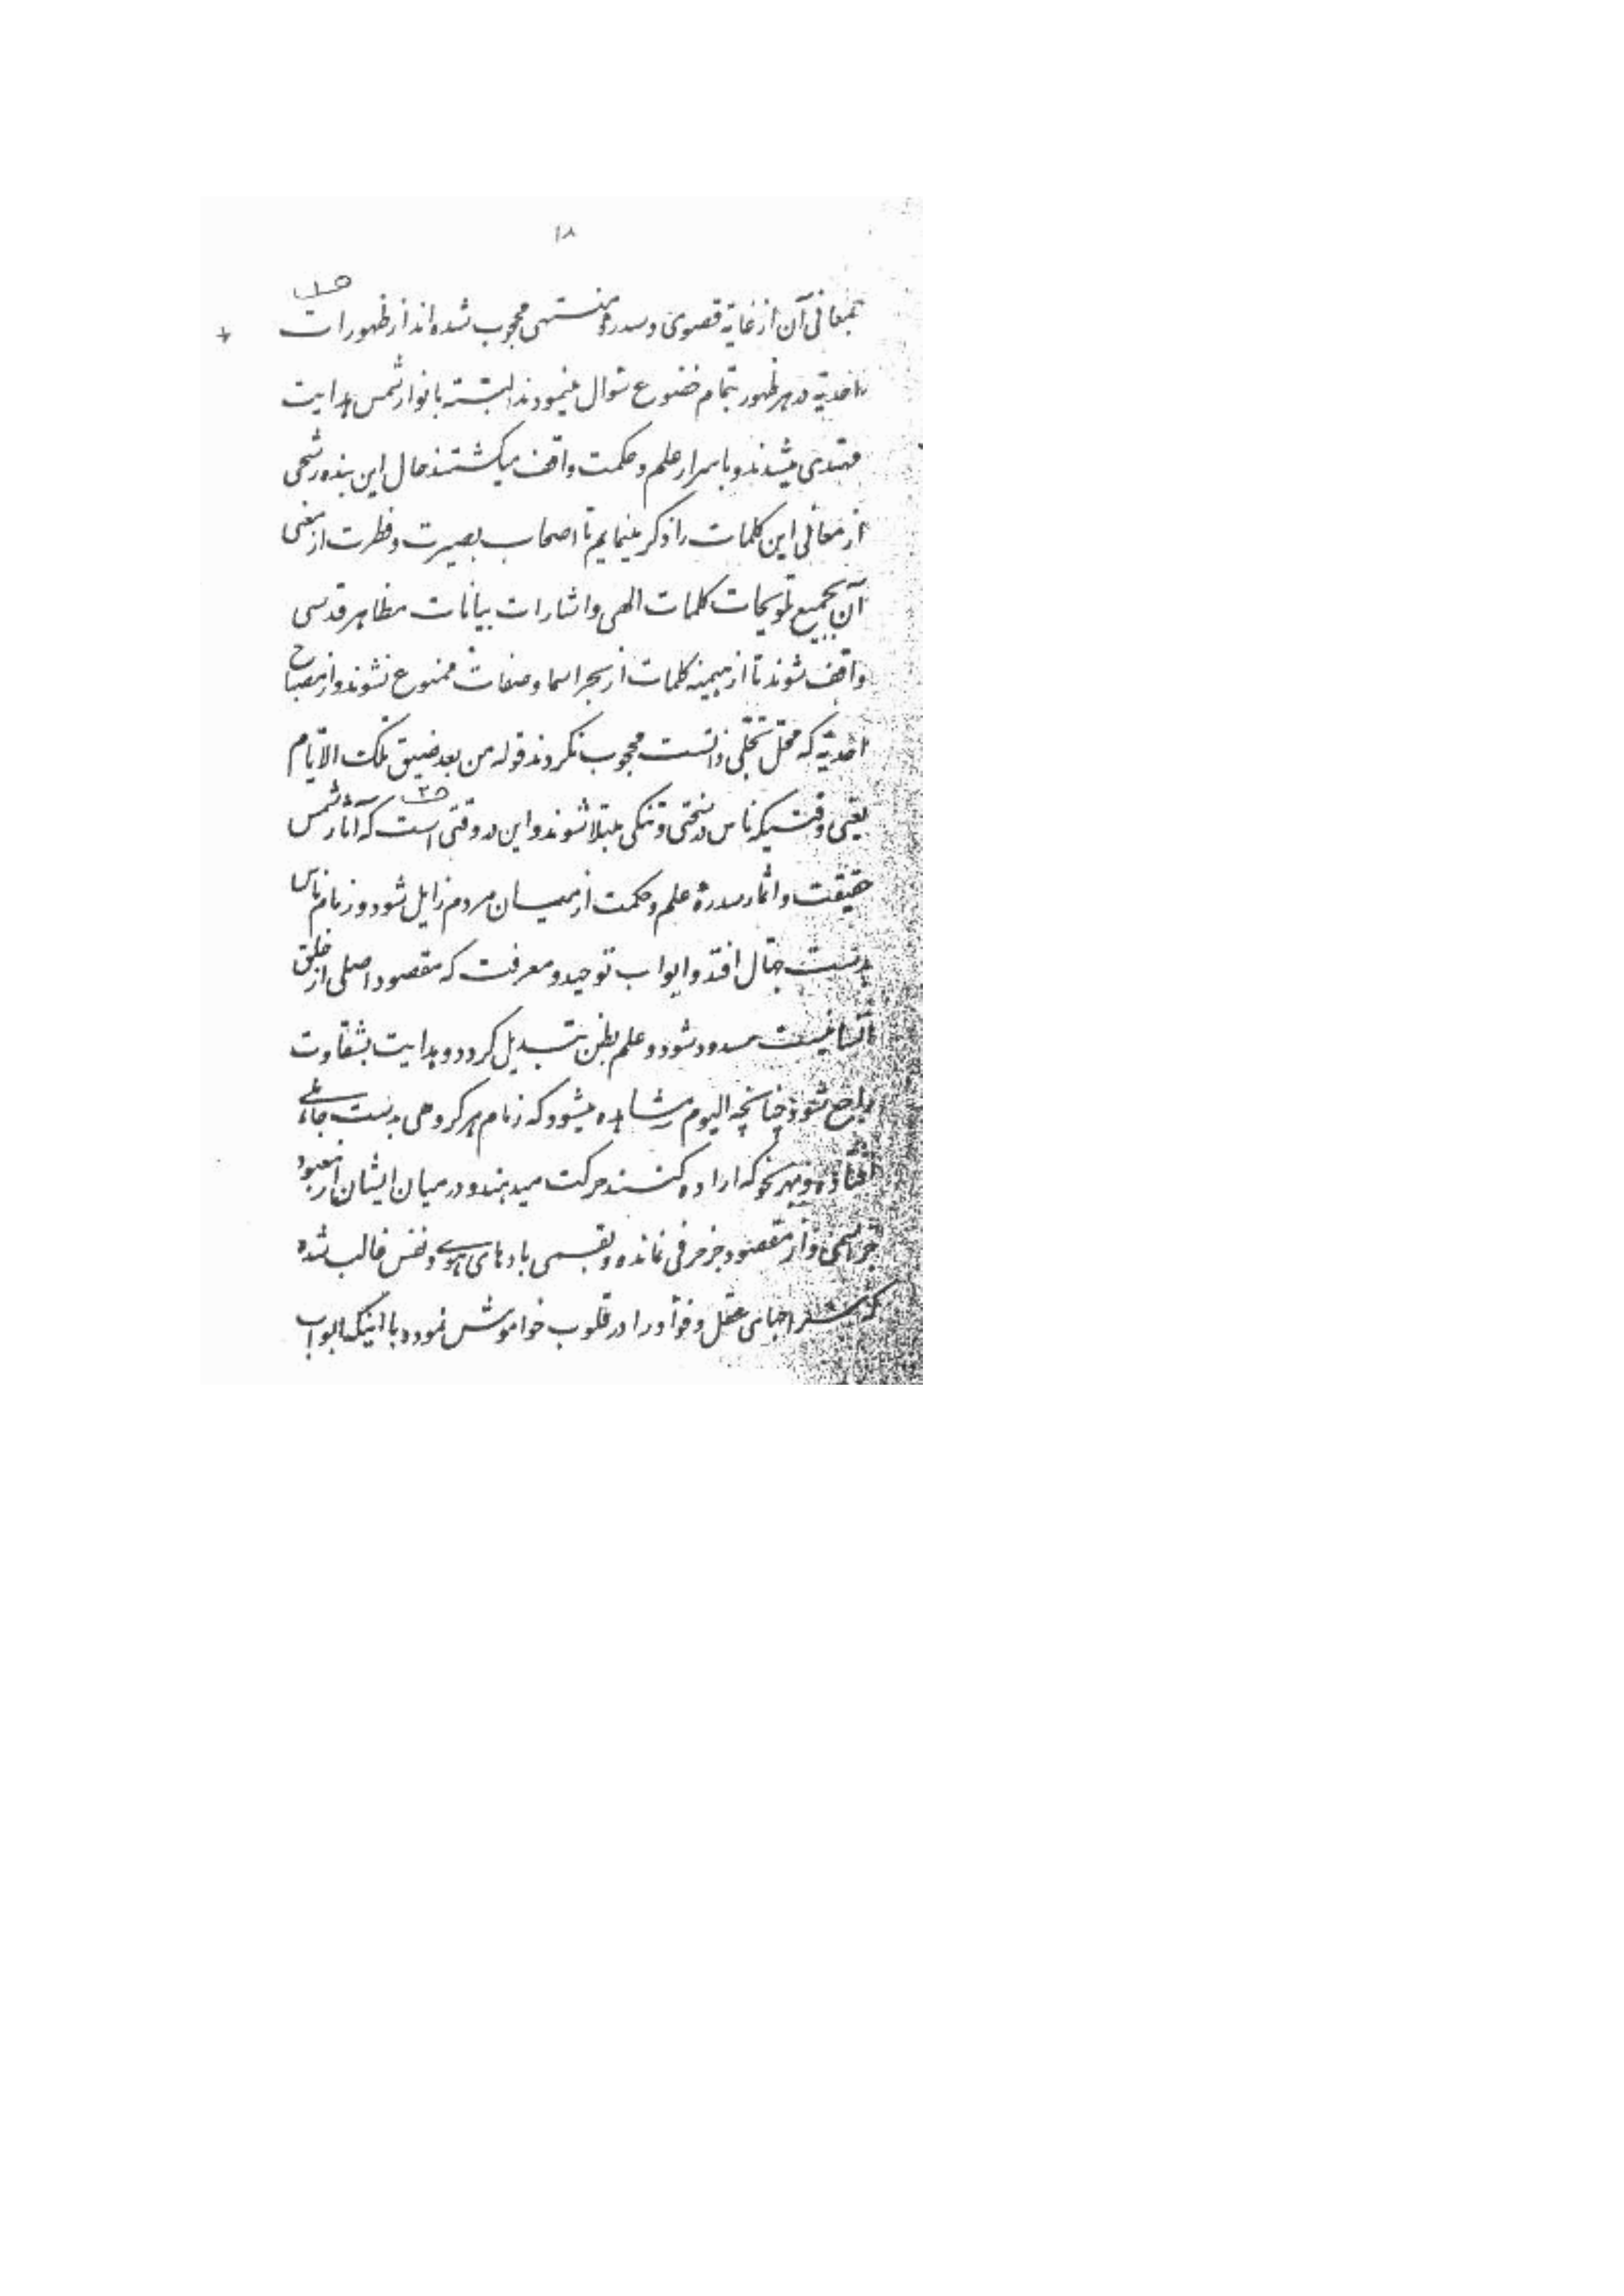 ۱۸
بمعانی آن از غایة قصوی و سدرهٔ منتهی محجوب شده‌اند از ظهورات
احدیّه در هر ظهور بتمام خضوع سؤال مینمودند البتّه بانوار شمس هدایت
مهتدی میشدند و باسرار علم و حکمت واقف میگشتند حال این بنده رشحی
از معانی این کلمات را ذکر مینمایم تا اصحاب بصیرت و فطرت از معنی
آن بجمیع تلویحات کلمات الهی و اشارات بیانات مظاهر قدسی
واقف شوند تا از هیمنه کلمات از بحر اسما و صفات ممنوع نشوند و از مصباح
احدیّه که محلّ تجلّی ذاتست محجوب نگردند قوله من بعد ضیق تلک الایّام
یعنی وقتیکه ناس در سختی و تنگی مبتلا شوند و این در وقتی است که آثار شمس
حقیقت و اثمار سدرهٔ علم و حکمت از میان مردم زایل شود و زمام ناس
بدست جهّال افتد و ابواب توحید و معرفت که مقصود اصلی از خلق
انسانیست مسدود شود و علم بظن تبدیل گردد و هدایت بشقاوت
راجع شود چنانچه الیوم مشاهده میشود که زمام هر گروهی بدست جاهلی
افتاده و بهر نحو که اراده کنند حرکت میدهند و در میان ایشان از معبود
جز اسمی و از مقصود جز حرفی نمانده و بقسمی بادهای هوی و نفس غالب شده
که سراجهای عقل و فؤاد را در قلوب خواموش نموده با اینکه ابواب